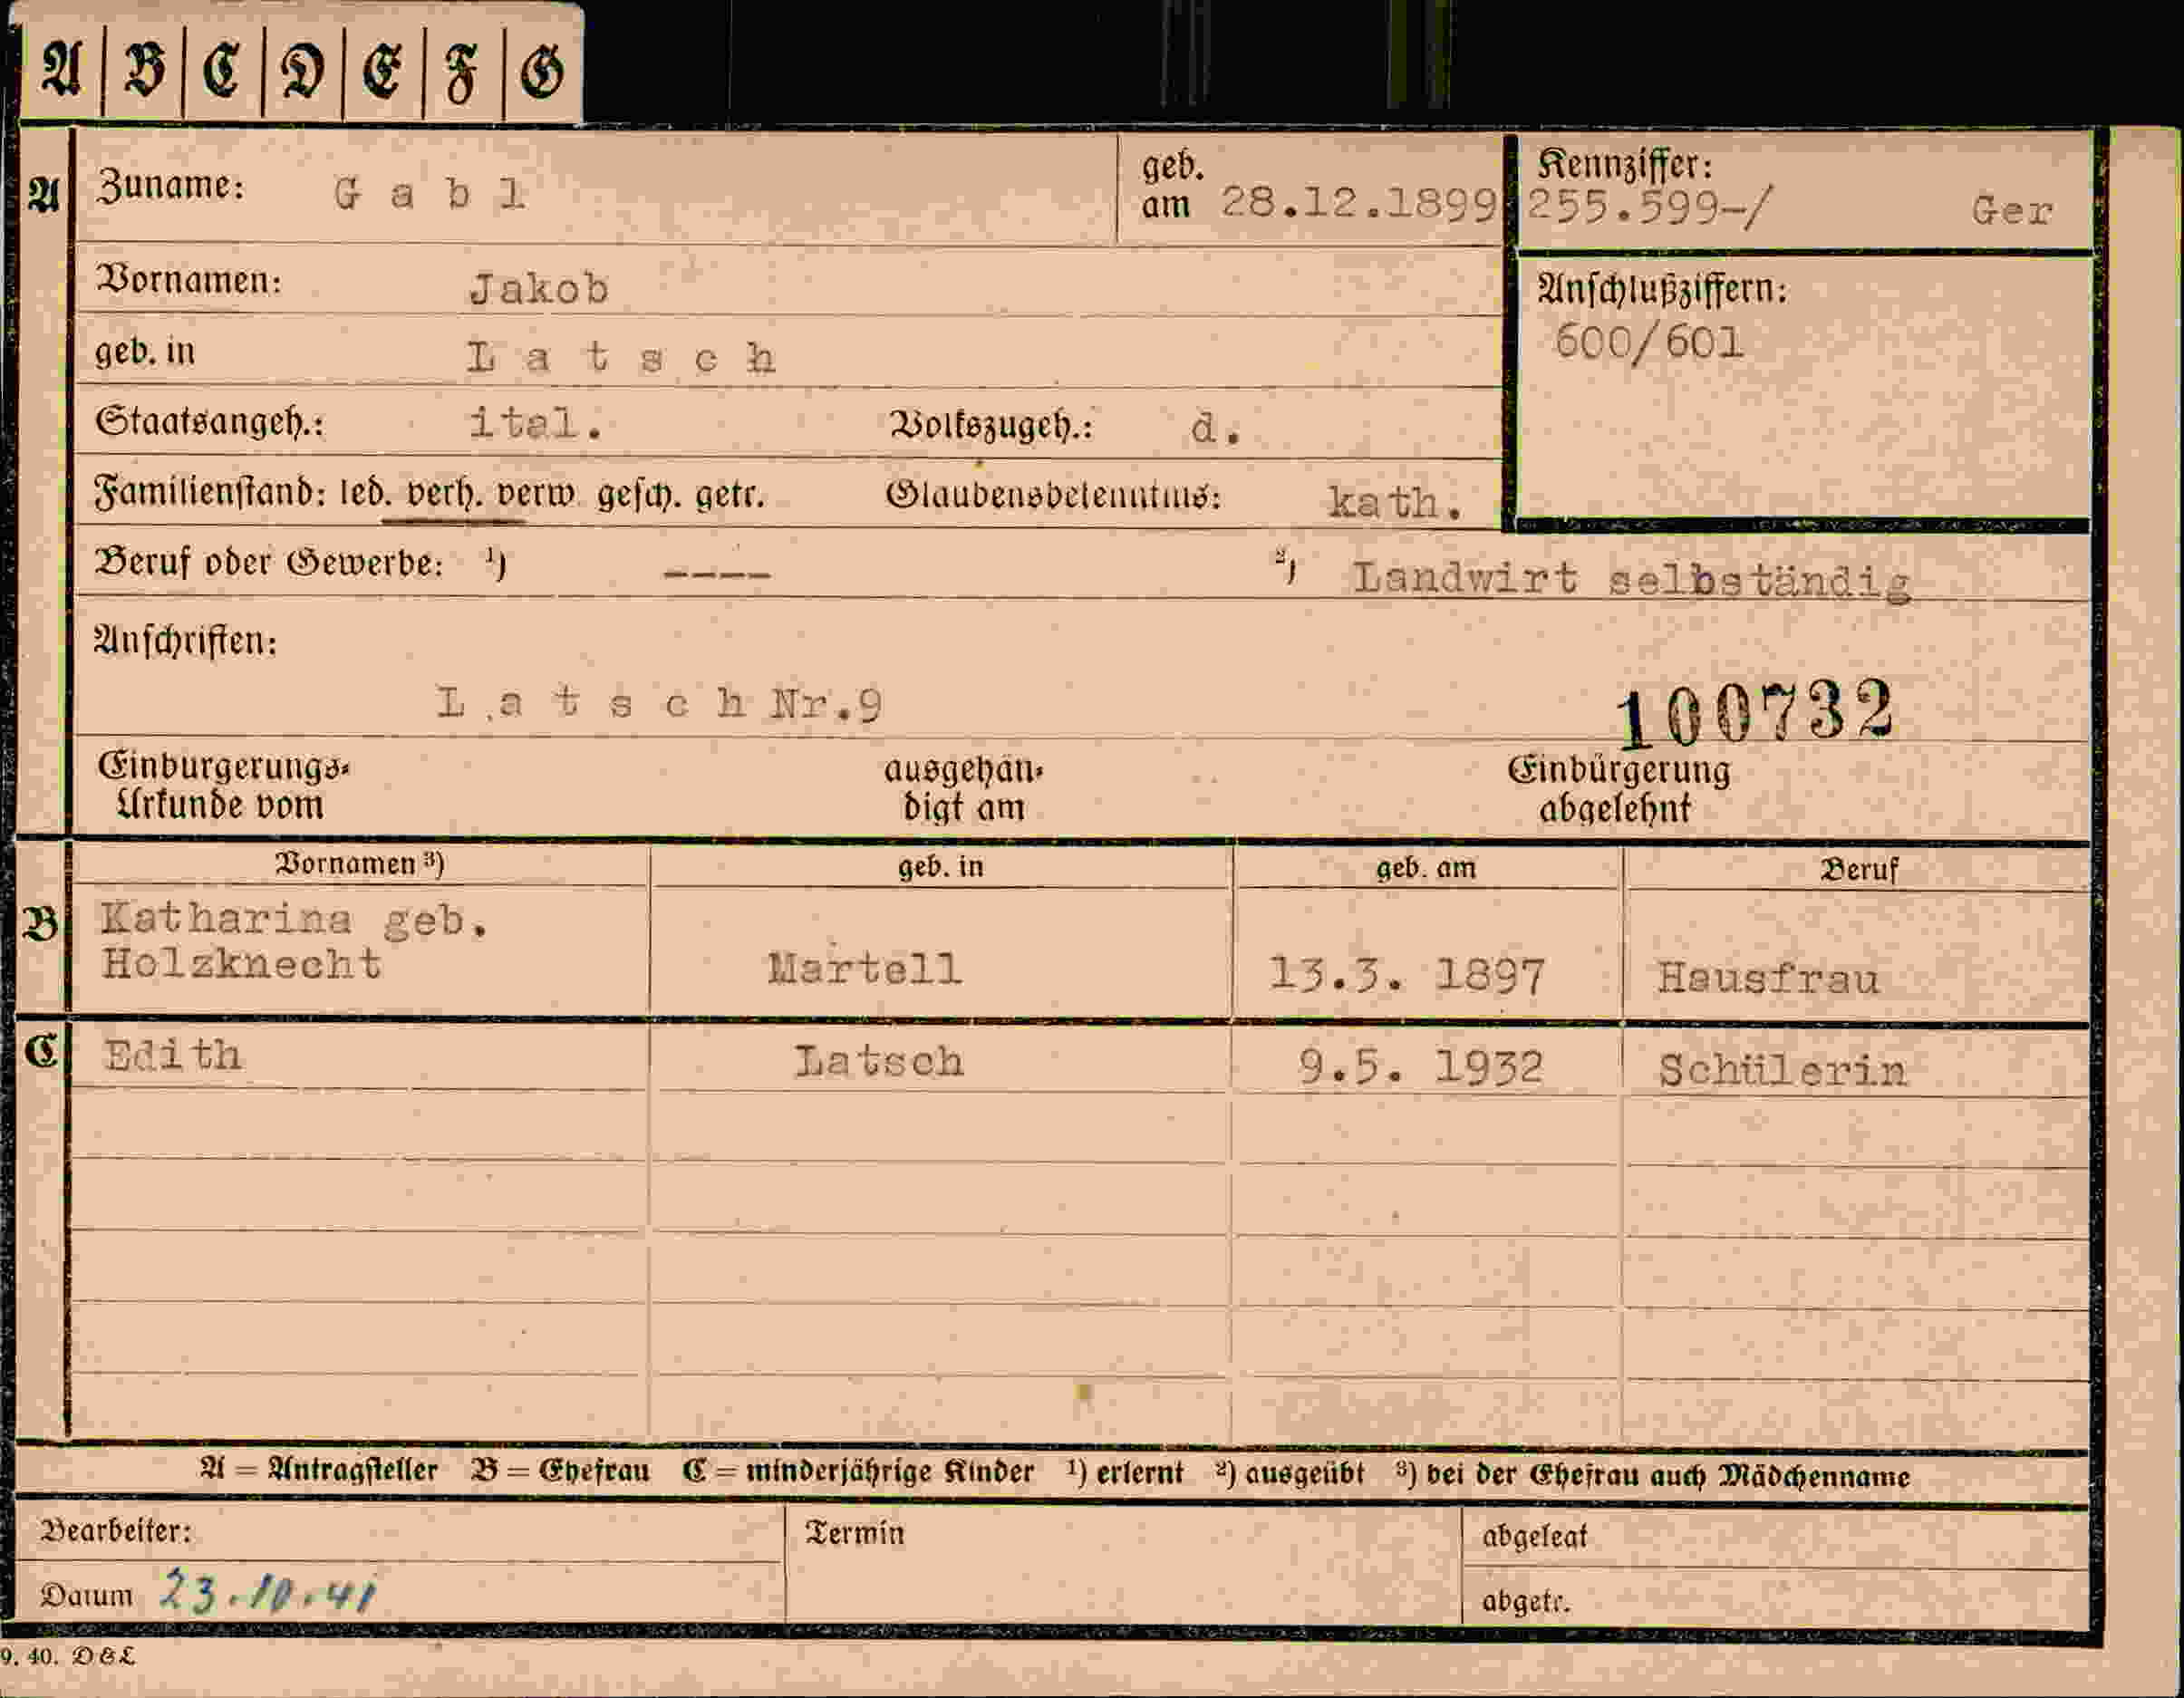 A B C D E F G
A Zuname: G a b l geb. am 28.12.1899 Kennziffer: 255.599-/ Ger
Vornamen: Jakob Anschlußziffern:
600/601
geb. in L a t s c h
Staatsangeh.: ital. Volkszugeh.: d.
Familienstand: led. verh. verw. gesch. getr. Glaubensbekenntnis: kath.
Beruf oder Gewerbe: ¹) ---- ²) Landwirt selbständig
Anschriften:
L a t s c h Nr.9 100732
Einbürgerungs- ausgehän- Einbürgerung
Urkunde vom digt am abgelehnt
Vornamen ³) geb. in geb. am Beruf
B Katharina geb.
Holzknecht Martell 13.3. 1897 Hausfrau
C Edith Latsch 9.5. 1932 Schülerin
A = Antragsteller B = Ehefrau C = minderjährige Kinder ¹) erlernt ²) ausgeübt ³) bei der Ehefrau auch Mädchenname
Bearbeiter: Termin abgelegt
Datum 23.10.41 abgetr.
9. 40. D&L